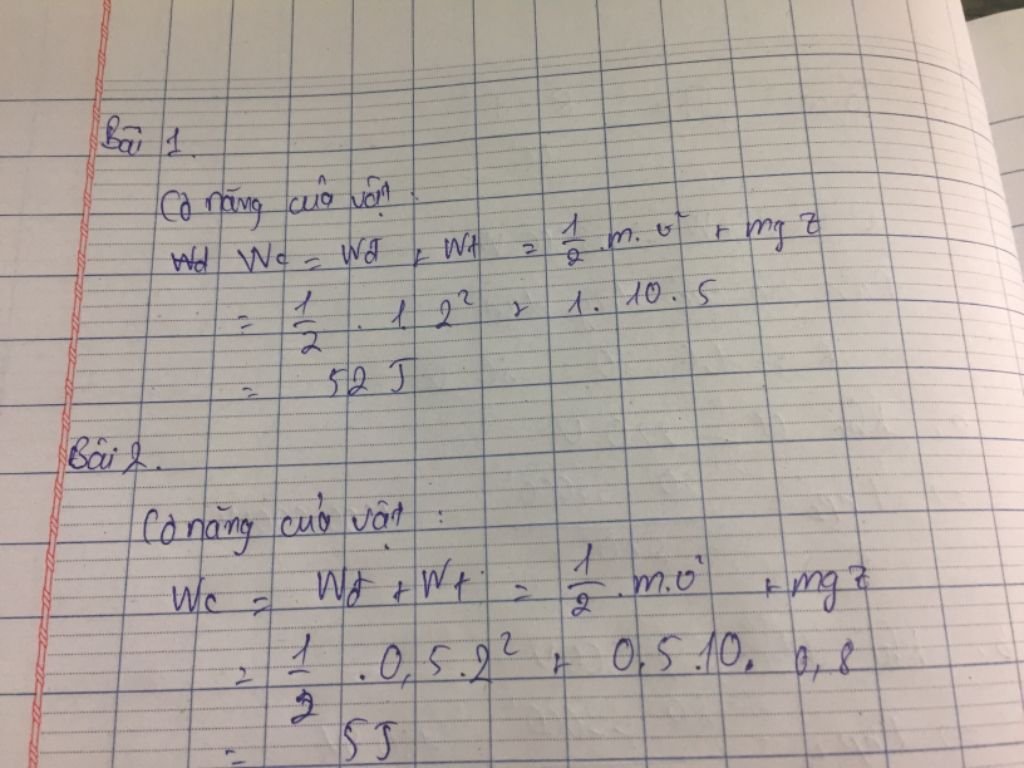 Bài 1.
Cơ năng của vật:
Wd Wc = Wđ + Wt = 1/2 . m. v² + mgz
= 1/2 . 1. 2² + 1. 10. 5
= 52 J
Bài 2.
Cơ năng của vật:
Wc = Wđ + Wt = 1/2 . m.v² + mgz
= 1/2 . 0,5.2² + 0,5.10. 0,8
= 5J